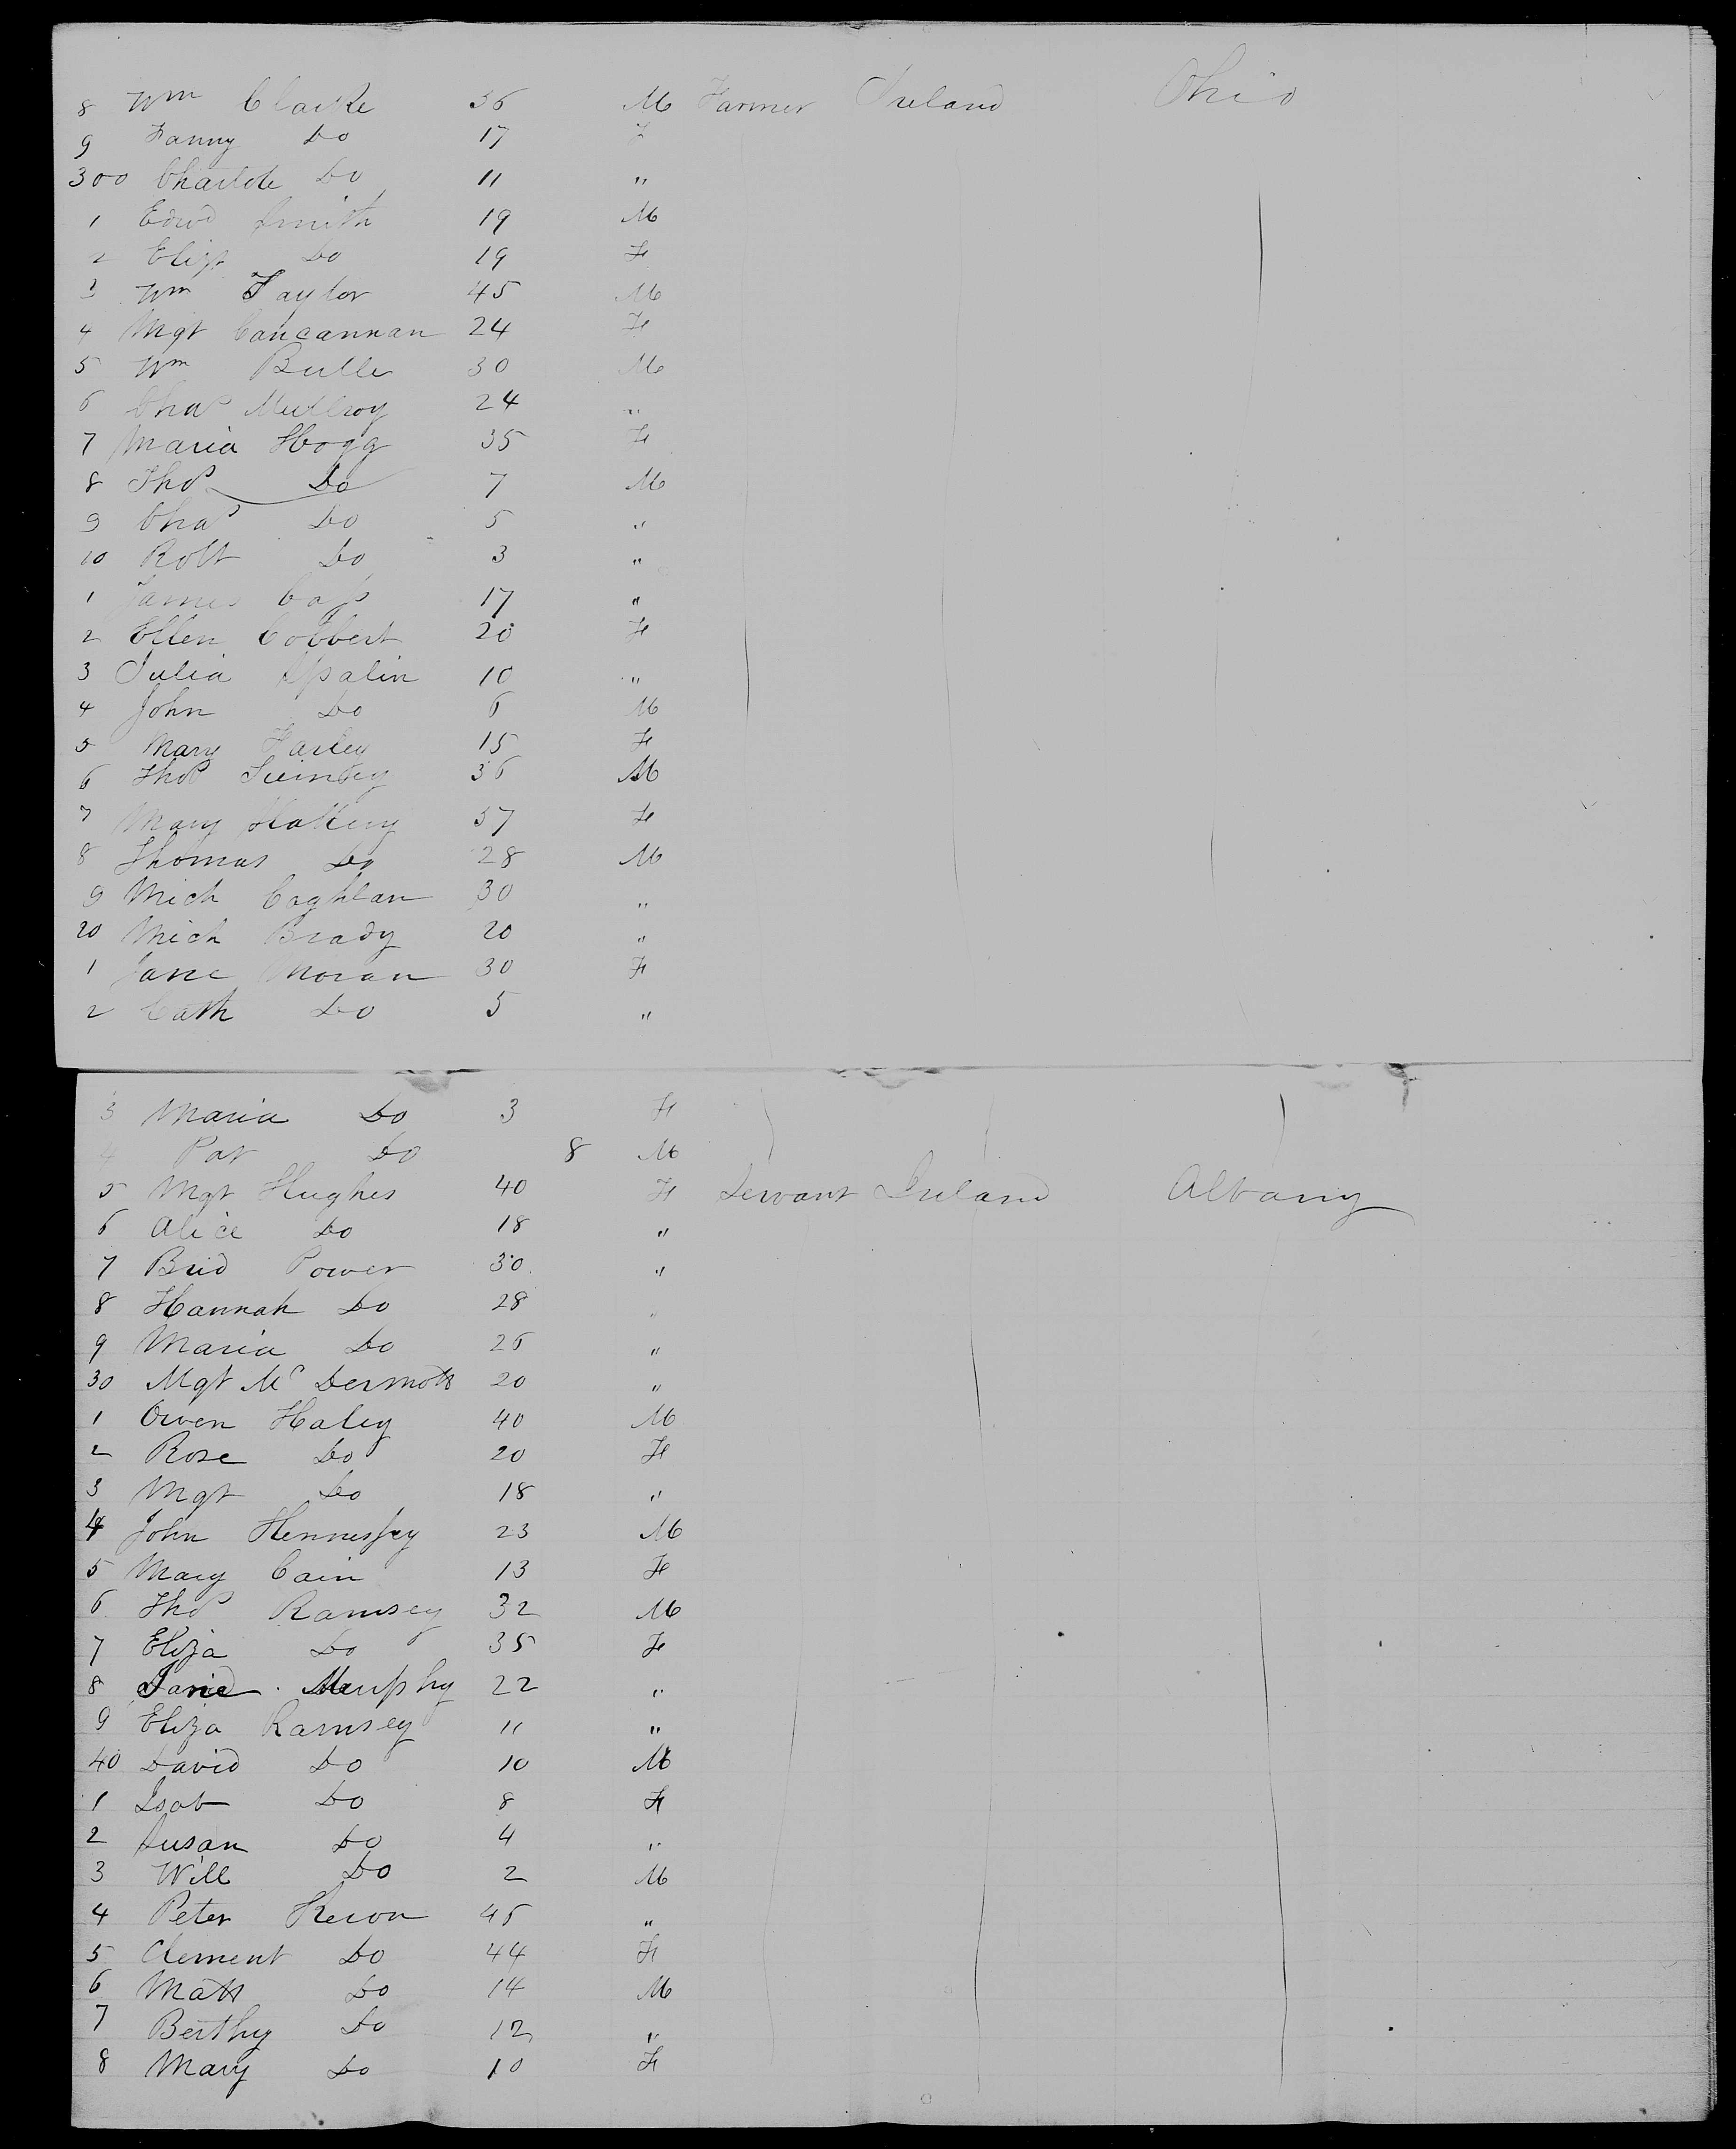 8 Wm Clarke 36 M Farmer Ireland Ohio
9 Fanny Do 17 F
300 Charlote Do 11 "
1 Edwd Smith 19 M
2 Eliza Do 19 F
3 Wm Taylor 45 M
4 Mgt Concannan 24 F
5 Wm Bulle 30 M
6 Chas Mullroy 24 "
7 Maria Hogg 35 F
8 Thos Do 7 M
9 Chas Do 5 "
10 Robt Do 3 "
1 James Cass 17 "
2 Ellen Cobbert 20 F
3 Julia Spalin 10 "
4 John Do 6 M
5 Mary Farley 15 F
6 Thos 36 M
7 Mary Slattery 37 F
8 Thomas Do 28 M
9 Mich Coghlan 30 "
20 Mich Brady 20 "
1 Jane Moran 30 F
2 Cath Do 5 "
3 Maria Do 3 F
4 Pat Do 8 M
5 Mgt Hughes 40 F Servant Ireland Albany
6 Alice Do 18 "
7 Brid Power 30 "
8 Hannah Do 28 "
9 Maria Do 26 "
30 Mgt Mc Dermott 20 "
1 Owen Haley 40 M
2 Rose Do 20 F
3 Mgt Do 18 "
4 John Hennessey 23 M
5 Mary Cain 13 F
6 Thos Ramsey 32 M
7 Eliza Do 35 F
8 Jane Murphy 22 "
9 Eliza Ramsey 11 "
40 David Do 10 M
1 Isab Do 8 F
2 Susan Do 4 "
3 Will Do 2 M
4 Peter Keron 46 "
5 Clement Do 44 F
6 Matt Do 14 M
7 Berthy Do 12 "
8 Mary Do 10 F